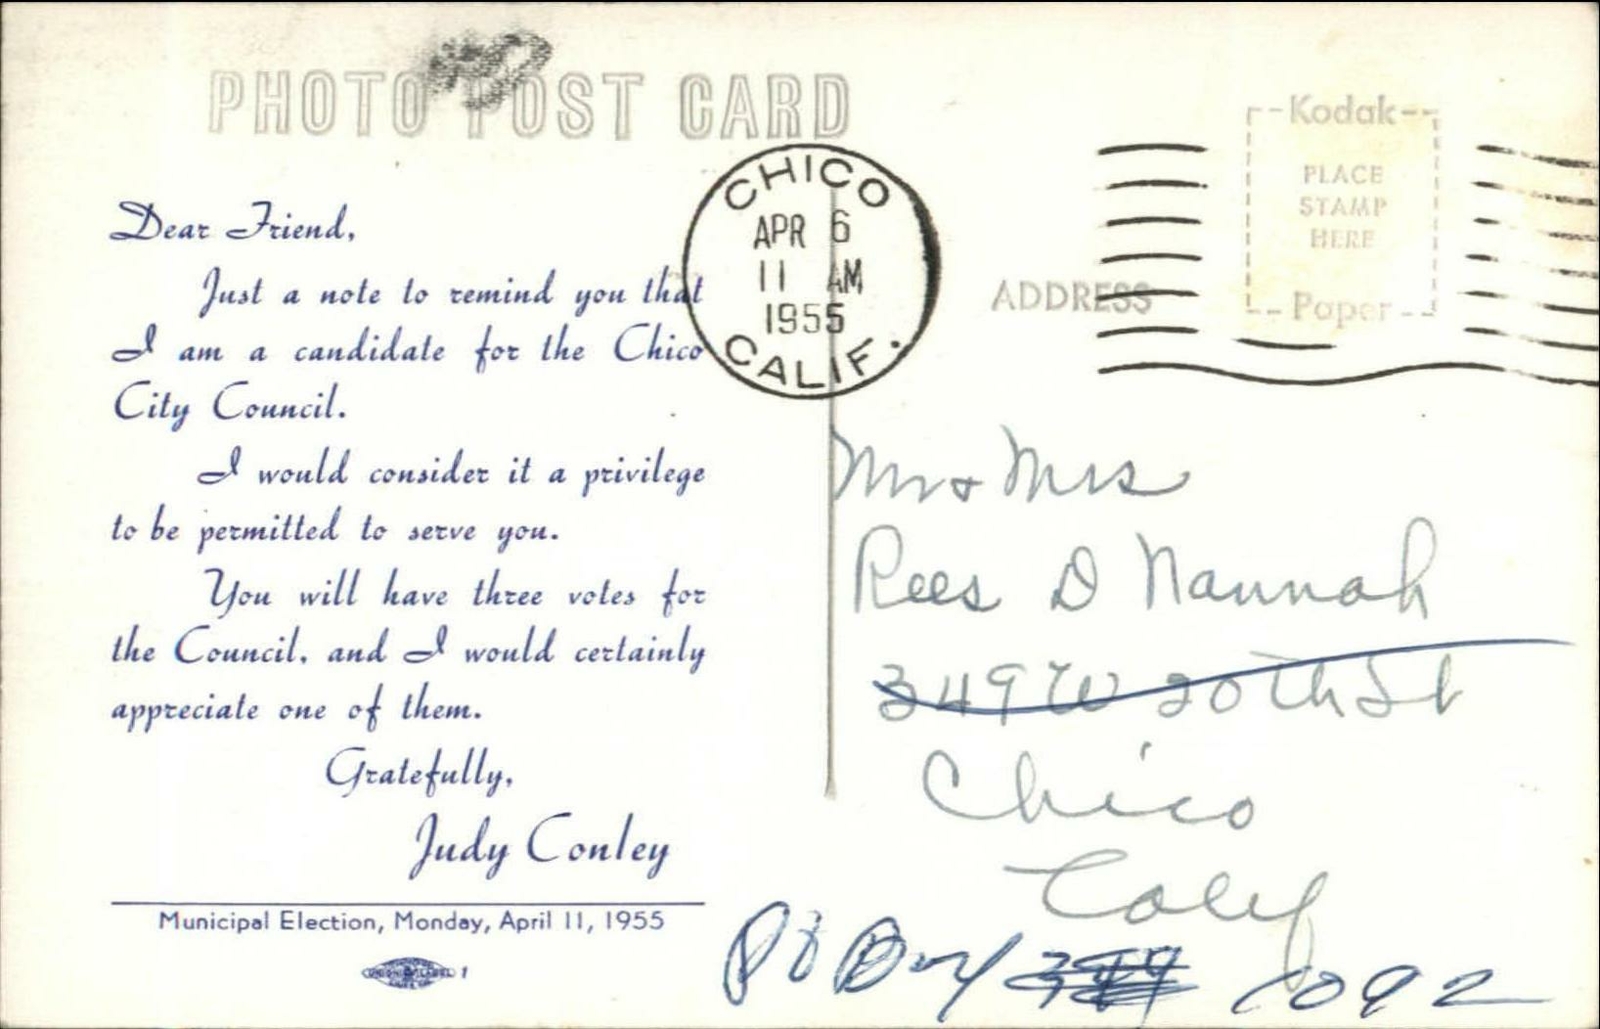 PHOTO POST CARD
Dear Friend,
Just a note to remind you that
I am a candidate for the Chico
City Council.
I would consider it a privilege
to be permitted to serve you.
You will have three votes for
the Council, and I would certainly
appreciate one of them.
Gratefully,
Judy Conley
Municipal Election, Monday, April 11, 1955
1
CHICO
APR 6
11 AM
1955
CALIF.
Kodak
PLACE
STAMP
HERE
Paper
ADDRESS
Mr & Mrs
Rees D Nannah
349 W 20th St
Chico
Calif
Box
1092